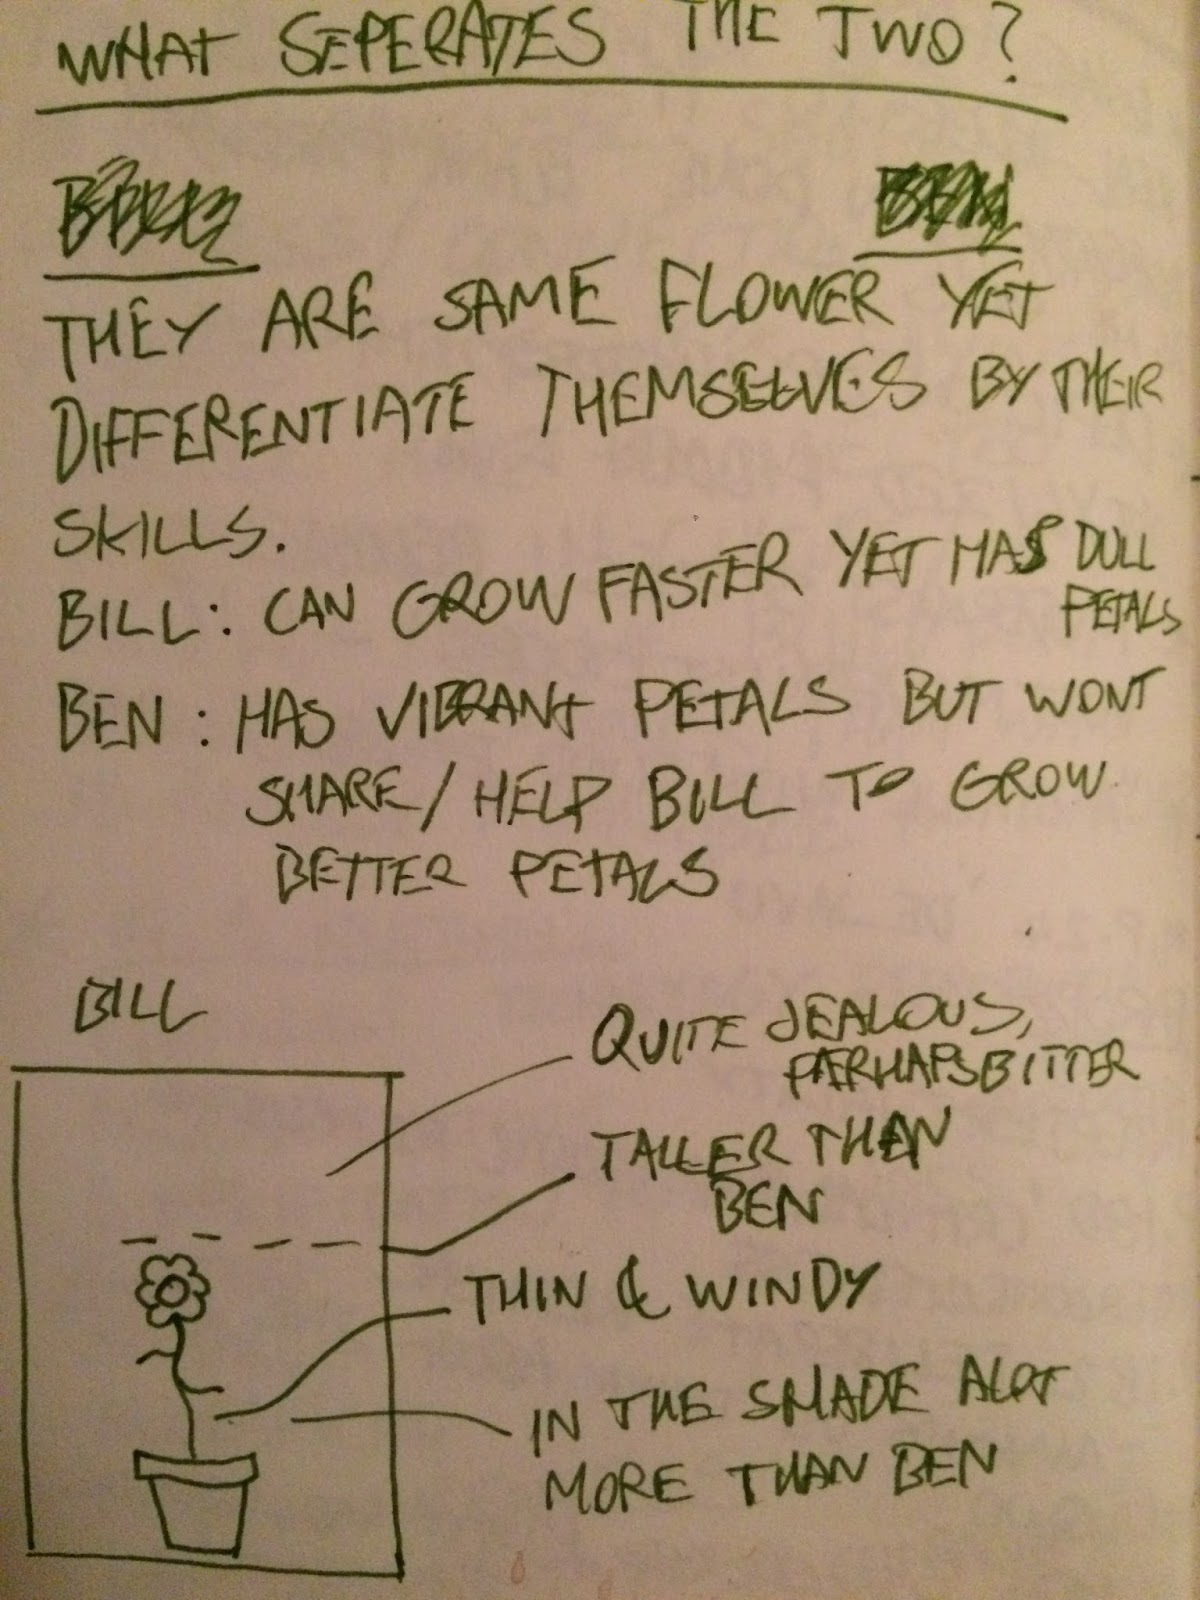 WHAT SEPERATES THE TWO?
BEN
THEY ARE SAME FLOWER YET
DIFFERENTIATE THEMSELVES BY THEIR
SKILLS.
BILL: CAN GROW FASTER YET HAS DULL
PETALS
BEN: HAS VIBRANT PETALS BUT WONT
SHARE/HELP BILL TO GROW
BETTER PETALS
BILL
QUITE JEALOUS,
PERHAPS BITTER
TALLER THAN
BEN
THIN & WINDY
IN THE SHADE ALOT
MORE THAN BEN